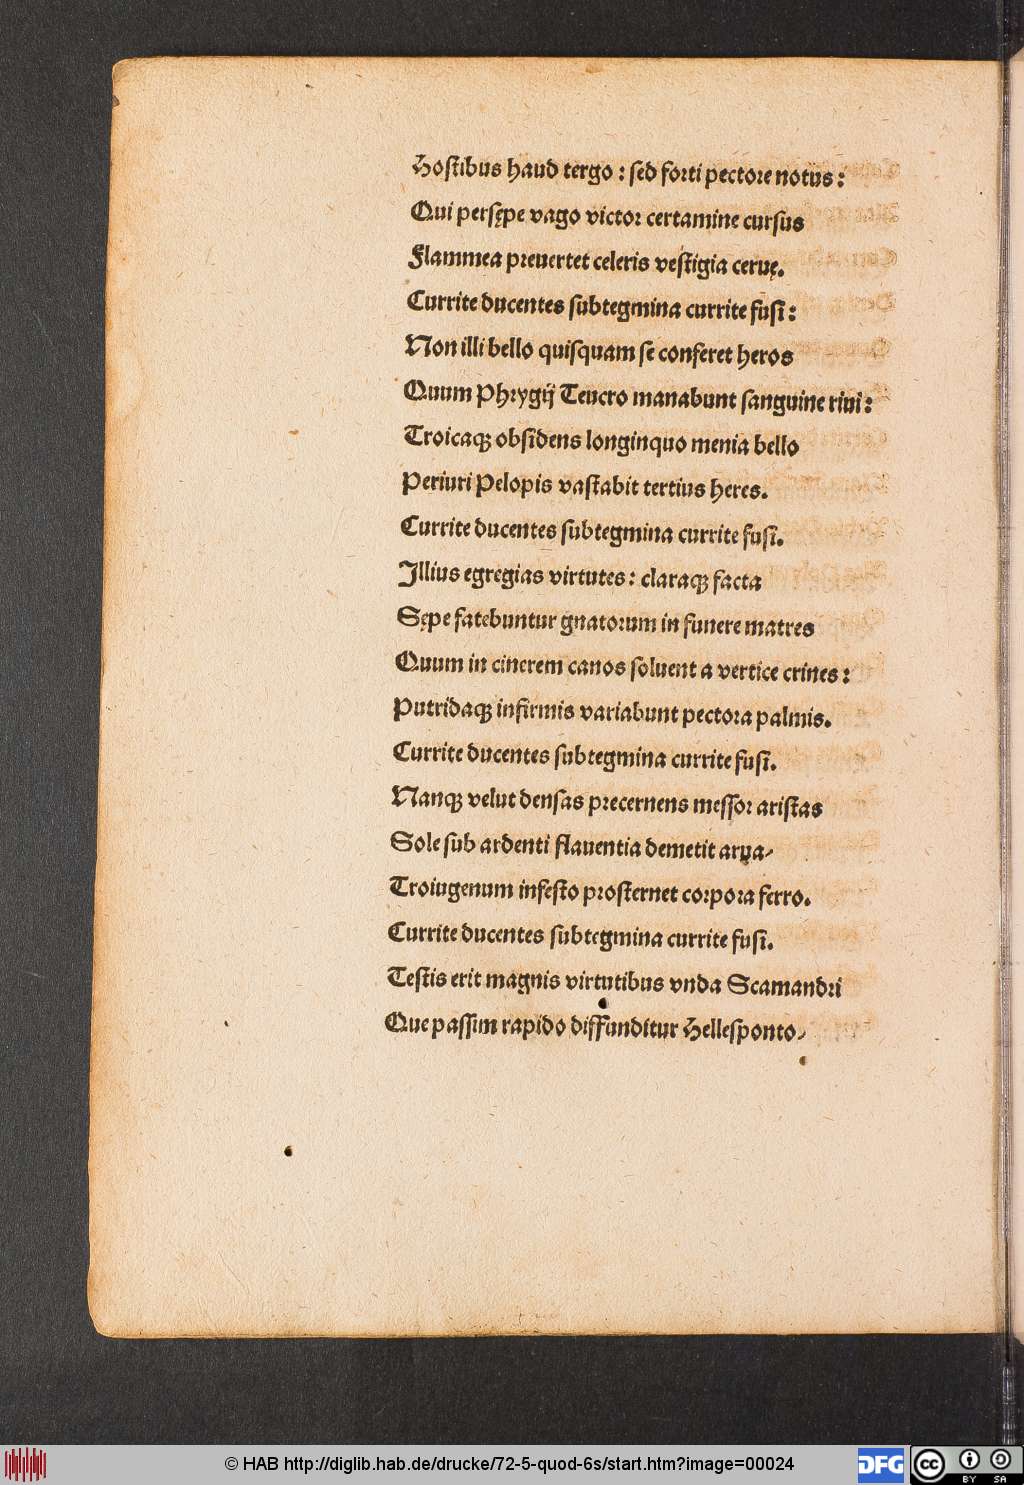 Hostibus haud tergo : sed forti pectore notus :
Qui persępe vago victor certamine cursus
Flammea preuertet celeris vestigia ceruę.
Currite ducentes subtegmina currite fusi :
Non illi bello quisquam se conferet heros
Quum Phrygij Teucro manabunt sanguine riui :
Troicaqꝫ obsidens longinquo menia bello
Periuri Pelopis vastabit tertius heres.
Currite ducentes subtegmina currite fusi.
Illius egregias virtutes : claraqꝫ facta
Sępe fatebuntur gnatorum in funere matres
Quum in cinerem canos soluent a vertice crines :
Putridaqꝫ infirmis variabunt pectora palmis.
Currite ducentes subtegmina currite fusi.
Nanqꝫ velut densas precernens messor aristas
Sole sub ardenti flauentia demetit arua/
Troiugenum infesto prosternet corpora ferro.
Currite ducentes subtegmina currite fusi.
Testis erit magnis virtutibus vnda Scamandri
Que passim rapido diffunditur Hellesponto/
© HAB http://diglib.hab.de/drucke/72-5-quod-6s/start.htm?image=00024
DFG
cc
BY SA